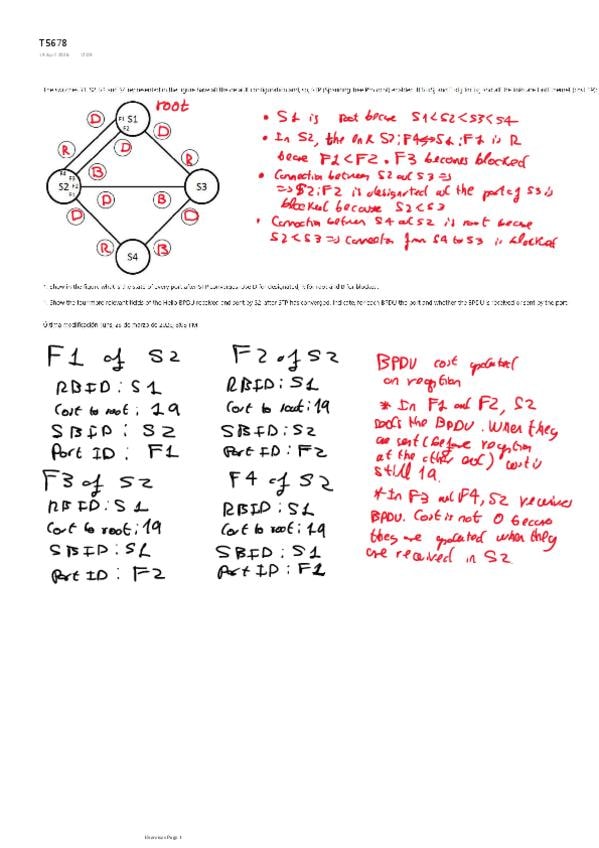 T5678
The switches S1, S2, S3 and S4 represented in the figure have all the default configuration and, so, STP (Spanning Tree Protocol) enabled.
root
D
F1
S1
F2
D
D
R
R
F4
B
F3
S2
F2
F1
S3
D
B
D
D
R
B
S4
• S1 is root becase S1<S2<S3<S4
• In S2, the link S2:F4↔S1:F1 is R
becase F1<F2. F3 becomes blocked
• Connection between S2 and S3 =>
=> S2:F2 is designated and the port of S3 is
blocked because S2<S3
• Connection between S4 and S2 is root becase
S2<S3 => connection from S4 to S3 is blocked
Show in the figure what is the state of every port after STP converges. Use D for designated, R for root and B for blocked.
Show the four more relevant fields of the Hello BPDU received and sent by S2 after STP has converged. Indicate, for each BPDU the port and whether the BPDU is received or sent by the port.
F1 of S2
RBID: S1
Cost to root: 19
SBID: S2
Port ID: F1
F2 of S2
RBID: S1
Cost to root: 19
SBID: S2
Port ID: F2
F3 of S2
RBID: S1
Cost to root: 19
SBID: S1
Port ID: F2
F4 of S2
RBID: S1
Cost to root: 19
SBID: S1
Port ID: F1
BPDU cost updated
on reception
* In F1 and F2, S2
sends the BPDU. When they
are sent (before reception
at the other end) cost is
still 19.
* In F3 and F4, S2 receives
BPDU. Cost is not 0 becase
they are updated when they
are received in S2
Exercises Page 1